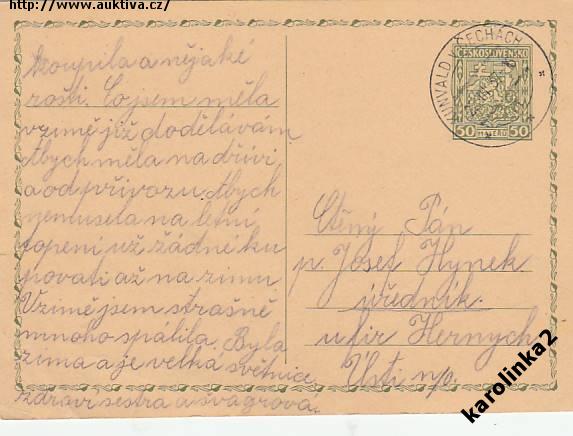 http://www.auktiva.cz/
koupila a nějaké
rošti. Co jsem měla
v zimě již dodělávám
Abych měla na dříví
a od přívozu. Abych
nemusela na letní
topení už žádné ku
povati až na zimu
V zimě jsem strašně
mnoho spálila. Byla
zima a je velká světnice
zdraví sestra a švagrová.
KUNVALD V ČECHÁCH
ČESKOSLOVENSKO
50 HALÉŘŮ 50
Ctěný Pán
p. Josef Hynek
úředník
u fir Hernych
Ústi n/o.
karolinka2